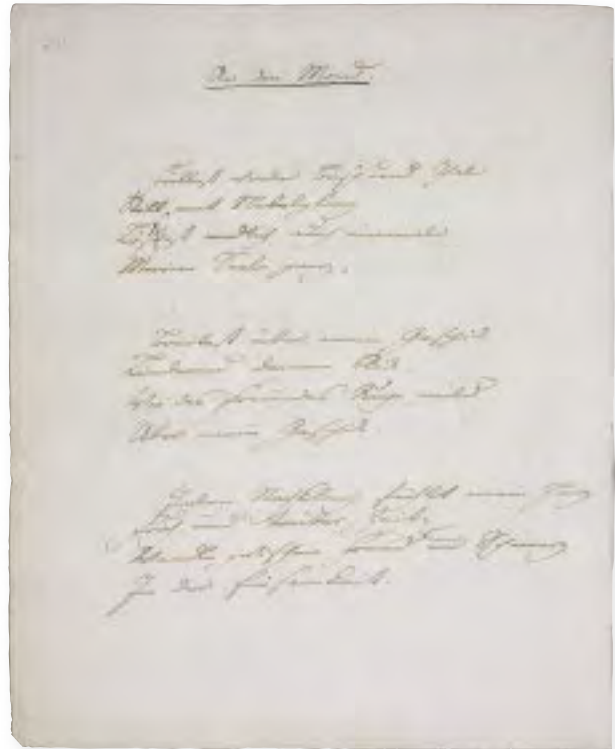 An den Mond.
Füllest wieder Busch und Thal
Still mit Nebelglanz
Lösest endlich auch einmal
Meine Seele ganz.
Breitest über mein Gefild
Lindernd deinen Blick
Wie des Freundes Auge mild
Über mein Geschick
Jeden Nachklang fühlt mein Herz
Froh und trüber Zeit,
Wandle zwischen Freud und Schmerz
In der Einsamkeit.